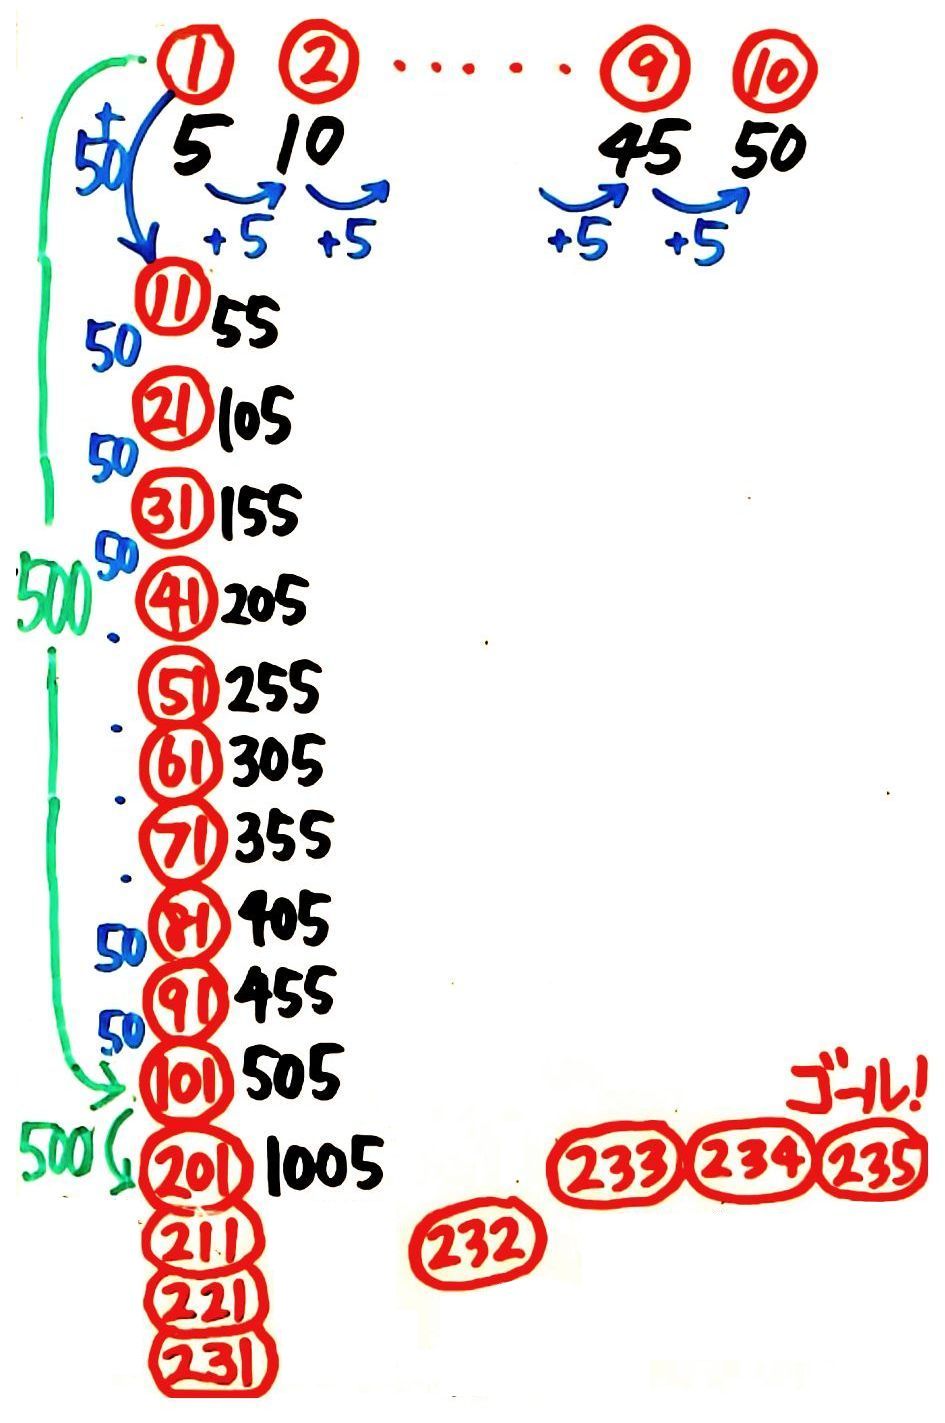 ① ② ・・・・・ ⑨ ⑩
5 10 45 50
+50
+5 +5 +5 +5
11 55
50
21 105
50
31 155
50
41 205
500
51 255
61 305
71 355
81 405
50
91 455
50
101 505
ゴール!
500 201 1005
233 234 235
211
232
221
231